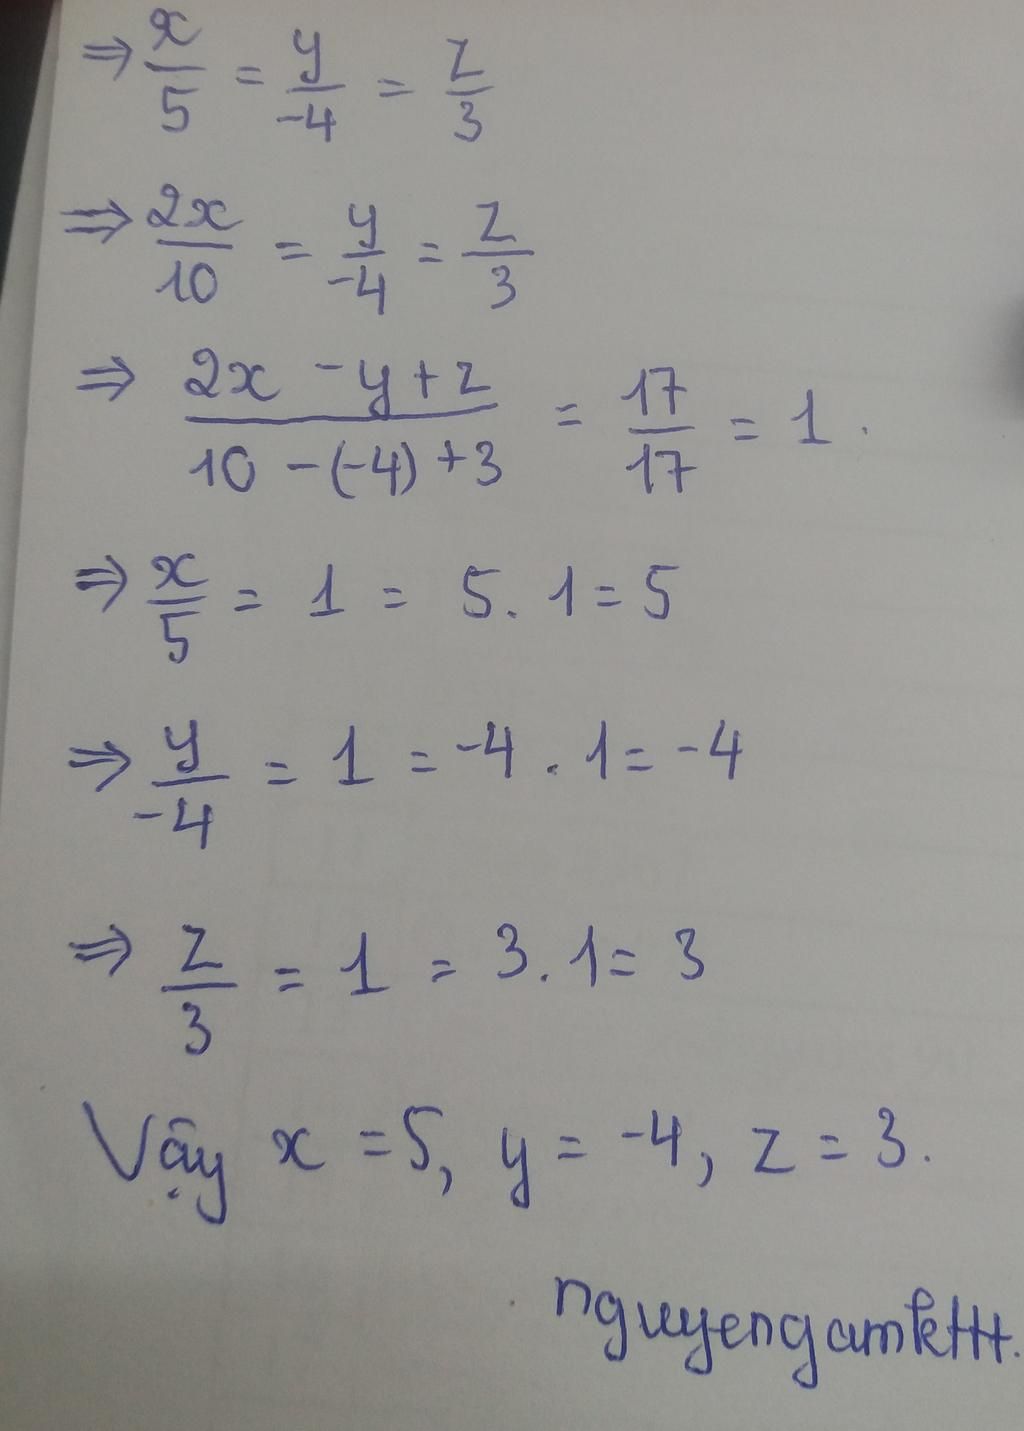 ⇒ x/5 = y/-4 = z/3
⇒ 2x/10 = y/-4 = z/3
⇒ (2x - y + z)/(10 - (-4) + 3) = 17/17 = 1.
⇒ x/5 = 1 = 5. 1 = 5
⇒ y/-4 = 1 = -4 . 1 = -4
⇒ z/3 = 1 = 3. 1 = 3
Vậy x = 5, y = -4, z = 3.